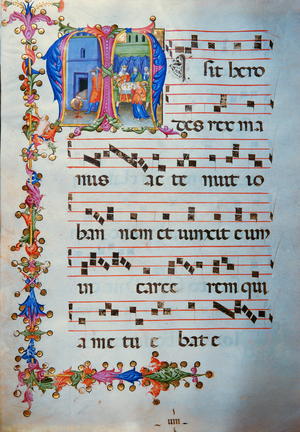 M isit hero
des rex ma
nus ac te nuit io
han nem et uinxit eum
in carce rem qui
a me tu bat e